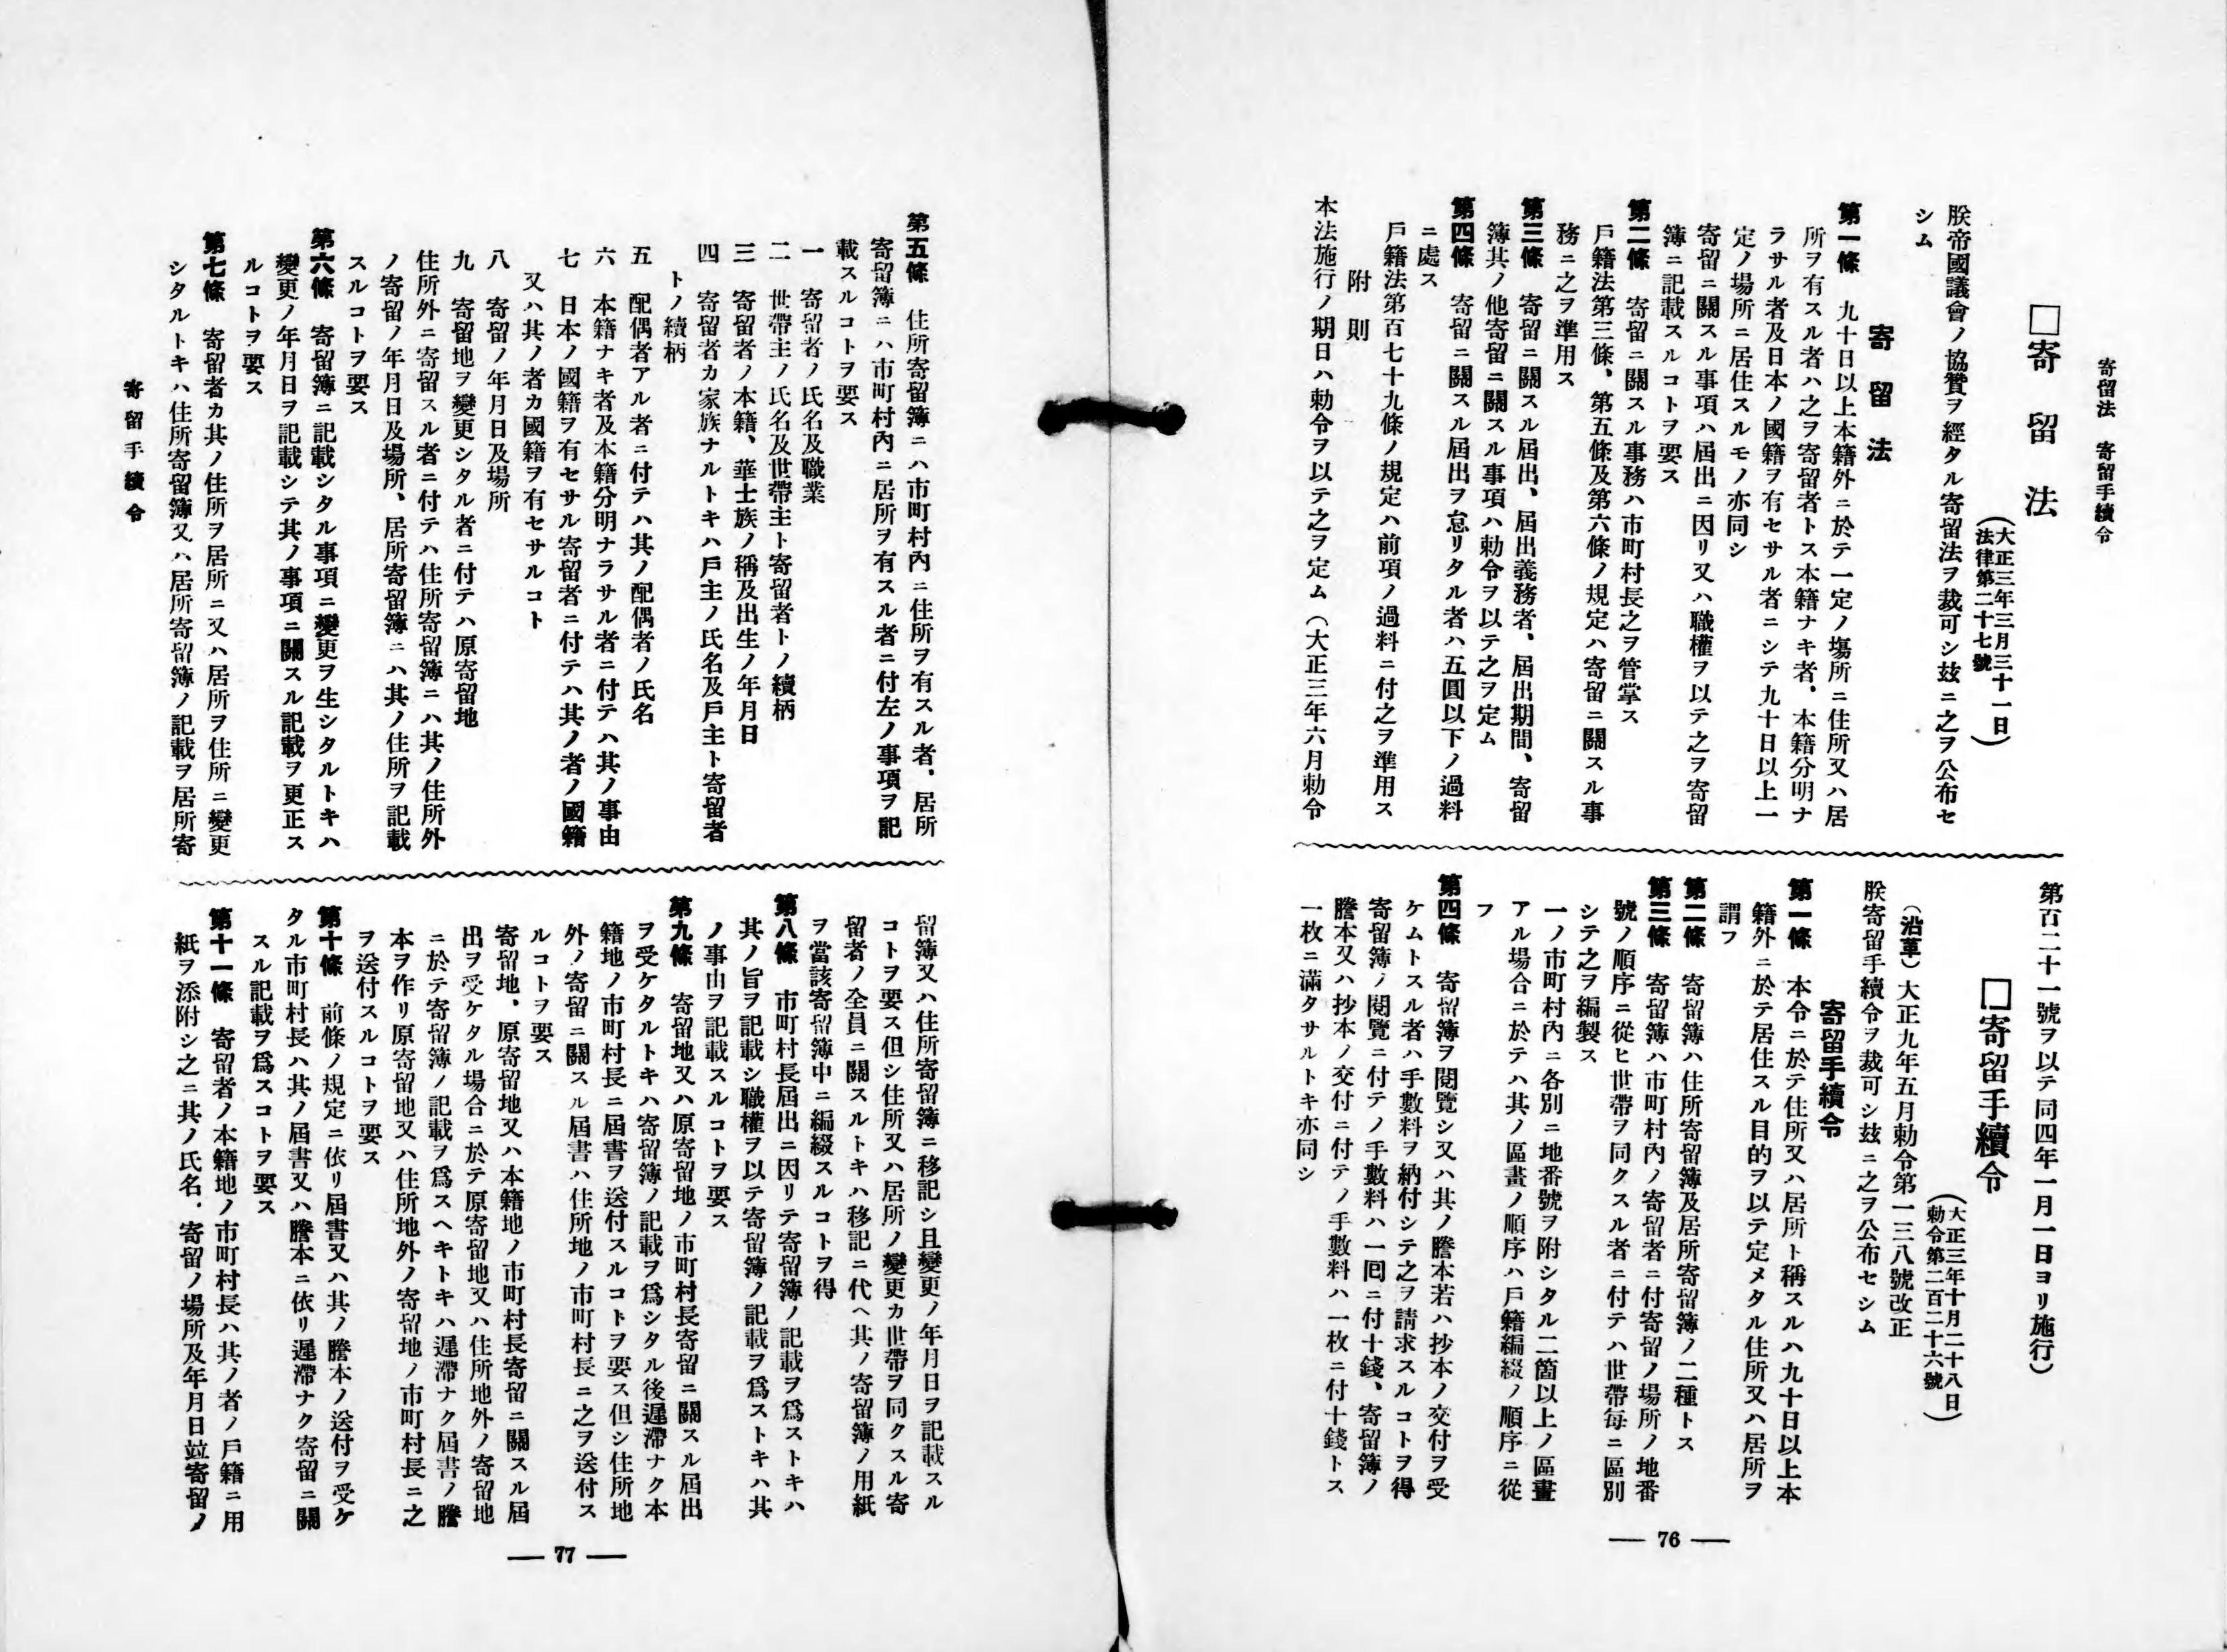 寄留法　寄留手續令
□寄留法
（大正三年三月三十一日
法律第二十七號）
朕帝國議會ノ協贊ヲ經タル寄留法ヲ裁可シ玆ニ之ヲ公布セ
シム
寄留法
第一條　九十日以上本籍外ニ於テ一定ノ場所ニ住所又ハ居
所ヲ有スル者ハ之ヲ寄留者トス本籍ナキ者、本籍分明ナ
ラサル者及日本ノ國籍ヲ有セサル者ニシテ九十日以上一
定ノ場所ニ居住スルモノ亦同シ
寄留ニ關スル事項ハ屆出ニ因リ又ハ職權ヲ以テ之ヲ寄留
簿ニ記載スルコトヲ要ス
第二條　寄留ニ關スル事務ハ市町村長之ヲ管掌ス
戶籍法第三條、第五條及第六條ノ規定ハ寄留ニ關スル事
務ニ之ヲ準用ス
第三條　寄留ニ關スル屆出、屆出義務者、屆出期間、寄留
簿其ノ他寄留ニ關スル事項ハ勅令ヲ以テ之ヲ定ム
第四條　寄留ニ關スル屆出ヲ怠リタル者ハ五圓以下ノ過料
ニ處ス
戶籍法第百七十九條ノ規定ハ前項ノ過料ニ付之ヲ準用ス
附則
本法施行ノ期日ハ勅令ヲ以テ之ヲ定ム（大正三年六月勅令
第百二十一號ヲ以テ同四年一月一日ヨリ施行）
□寄留手續令
（大正三年十月二十八日
勅令第二百二十六號）
（沿革）大正九年五月勅令第一三八號改正
朕寄留手續令ヲ裁可シ玆ニ之ヲ公布セシム
寄留手續令
第一條　本令ニ於テ住所又ハ居所ト稱スルハ九十日以上本
籍外ニ於テ居住スル目的ヲ以テ定メタル住所又ハ居所ヲ
謂フ
第二條　寄留簿ハ住所寄留簿及居所寄留簿ノ二種トス
第三條　寄留簿ハ市町村內ノ寄留者ニ付寄留ノ場所ノ地番
號ノ順序ニ從ヒ世帶ヲ同クスル者ニ付テハ世帶每ニ區別
シテ之ヲ編製ス
一ノ市町村內ニ各別ニ地番號ヲ附シタル二箇以上ノ區畫
アル場合ニ於テハ其ノ區畫ノ順序ハ戶籍編綴ノ順序ニ從
フ
第四條　寄留簿ヲ閱覽シ又ハ其ノ謄本若ハ抄本ノ交付ヲ受
ケムトスル者ハ手數料ヲ納付シテ之ヲ請求スルコトヲ得
寄留簿ノ閱覽ニ付テノ手數料ハ一囘ニ付十錢、寄留簿ノ
謄本又ハ抄本ノ交付ニ付テノ手數料ハ一枚ニ付十錢トス
一枚ニ滿タサルトキ亦同シ
— 76 —
第五條　住所寄留簿ニハ市町村內ニ住所ヲ有スル者、居所
寄留簿ニハ市町村內ニ居所ヲ有スル者ニ付左ノ事項ヲ記
載スルコトヲ要ス
一　寄留者ノ氏名及職業
二　世帶主ノ氏名及世帶主ト寄留者トノ續柄
三　寄留者ノ本籍、華士族ノ稱及出生ノ年月日
四　寄留者カ家族ナルトキハ戶主ノ氏名及戶主ト寄留者
トノ續柄
五　配偶者アル者ニ付テハ其ノ配偶者ノ氏名
六　本籍ナキ者及本籍分明ナラサル者ニ付テハ其ノ事由
七　日本ノ國籍ヲ有セサル寄留者ニ付テハ其ノ者ノ國籍
又ハ其ノ者カ國籍ヲ有セサルコト
八　寄留ノ年月日及場所
九　寄留地ヲ變更シタル者ニ付テハ原寄留地
住所外ニ寄留スル者ニ付テハ住所寄留簿ニハ其ノ住所外
ノ寄留ノ年月日及場所、居所寄留簿ニハ其ノ住所ヲ記載
スルコトヲ要ス
第六條　寄留簿ニ記載シタル事項ニ變更ヲ生シタルトキハ
變更ノ年月日ヲ記載シテ其ノ事項ニ關スル記載ヲ更正ス
ルコトヲ要ス
第七條　寄留者カ其ノ住所ヲ居所ニ又ハ居所ヲ住所ニ變更
シタルトキハ住所寄留簿又ハ居所寄留簿ノ記載ヲ居所寄
留簿又ハ住所寄留簿ニ移記シ且變更ノ年月日ヲ記載スル
コトヲ要ス但シ住所又ハ居所ノ變更カ世帶ヲ同クスル寄
留者ノ全員ニ關スルトキハ移記ニ代ヘ其ノ寄留簿ノ用紙
ヲ當該寄留簿中ニ編綴スルコトヲ得
第八條　市町村長屆出ニ因リテ寄留簿ノ記載ヲ爲ストキハ
其ノ旨ヲ記載シ職權ヲ以テ寄留簿ノ記載ヲ爲ストキハ其
ノ事由ヲ記載スルコトヲ要ス
第九條　寄留地又ハ原寄留地ノ市町村長寄留ニ關スル屆出
ヲ受ケタルトキハ寄留簿ノ記載ヲ爲シタル後遲滯ナク本
籍地ノ市町村長ニ屆書ヲ送付スルコトヲ要ス但シ住所地
外ノ寄留ニ關スル屆書ハ住所地ノ市町村長ニ之ヲ送付ス
ルコトヲ要ス
寄留地、原寄留地又ハ本籍地ノ市町村長寄留ニ關スル屆
出ヲ受ケタル場合ニ於テ原寄留地又ハ住所地外ノ寄留地
ニ於テ寄留簿ノ記載ヲ爲スヘキトキハ遲滯ナク屆書ノ謄
本ヲ作リ原寄留地又ハ住所地外ノ寄留地ノ市町村長ニ之
ヲ送付スルコトヲ要ス
第十條　前條ノ規定ニ依リ屆書又ハ其ノ謄本ノ送付ヲ受ケ
タル市町村長ハ其ノ屆書又ハ謄本ニ依リ遲滯ナク寄留ニ關
スル記載ヲ爲スコトヲ要ス
第十一條　寄留者ノ本籍地ノ市町村長ハ其ノ者ノ戶籍ニ用
紙ヲ添附シ之ニ其ノ氏名、寄留ノ場所及年月日竝寄留ノ
寄留手續令
— 77 —